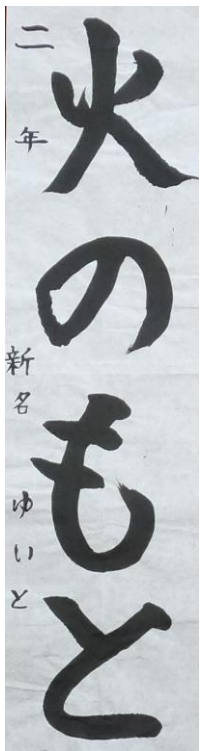 火のもと
二年 新名 ゆいと